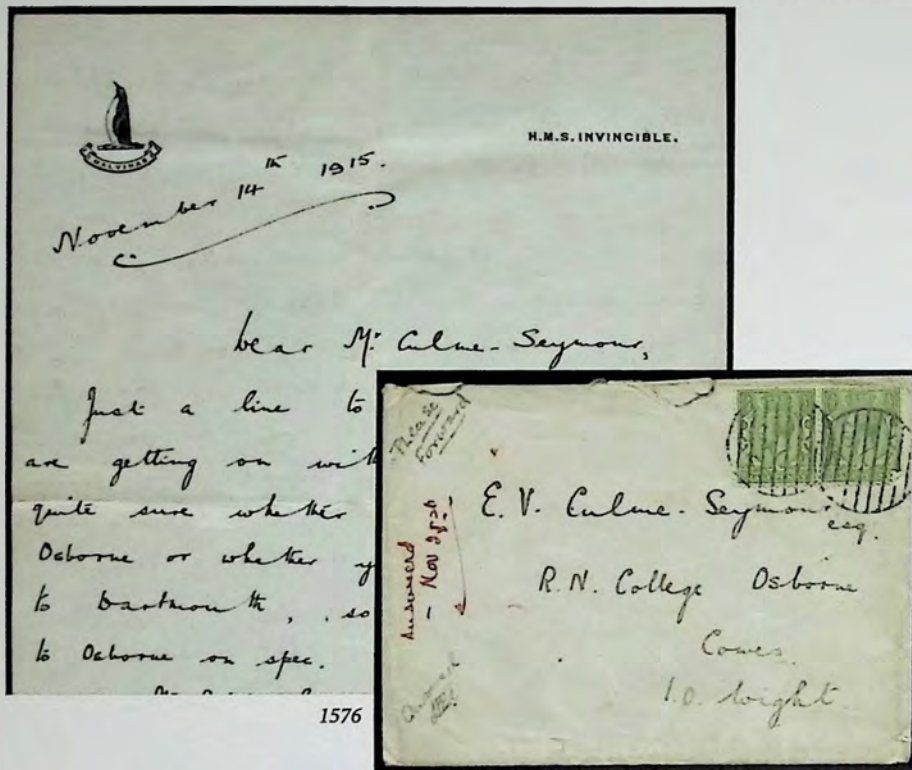 MALVINAS
H.M.S. INVINCIBLE.
November 14th 1915.
Dear Mr Culme-Seymour,
Just a line to
are getting on with
quite sure whether
Osborne or whether y
to Dartmouth, so
to Osborne on spec.
Please
Forward
Answered
- Nov 25th -
E. V. Culme-Seymour
esq.
R.N. College Osborne
Cowes
I.O. Wight.
1576